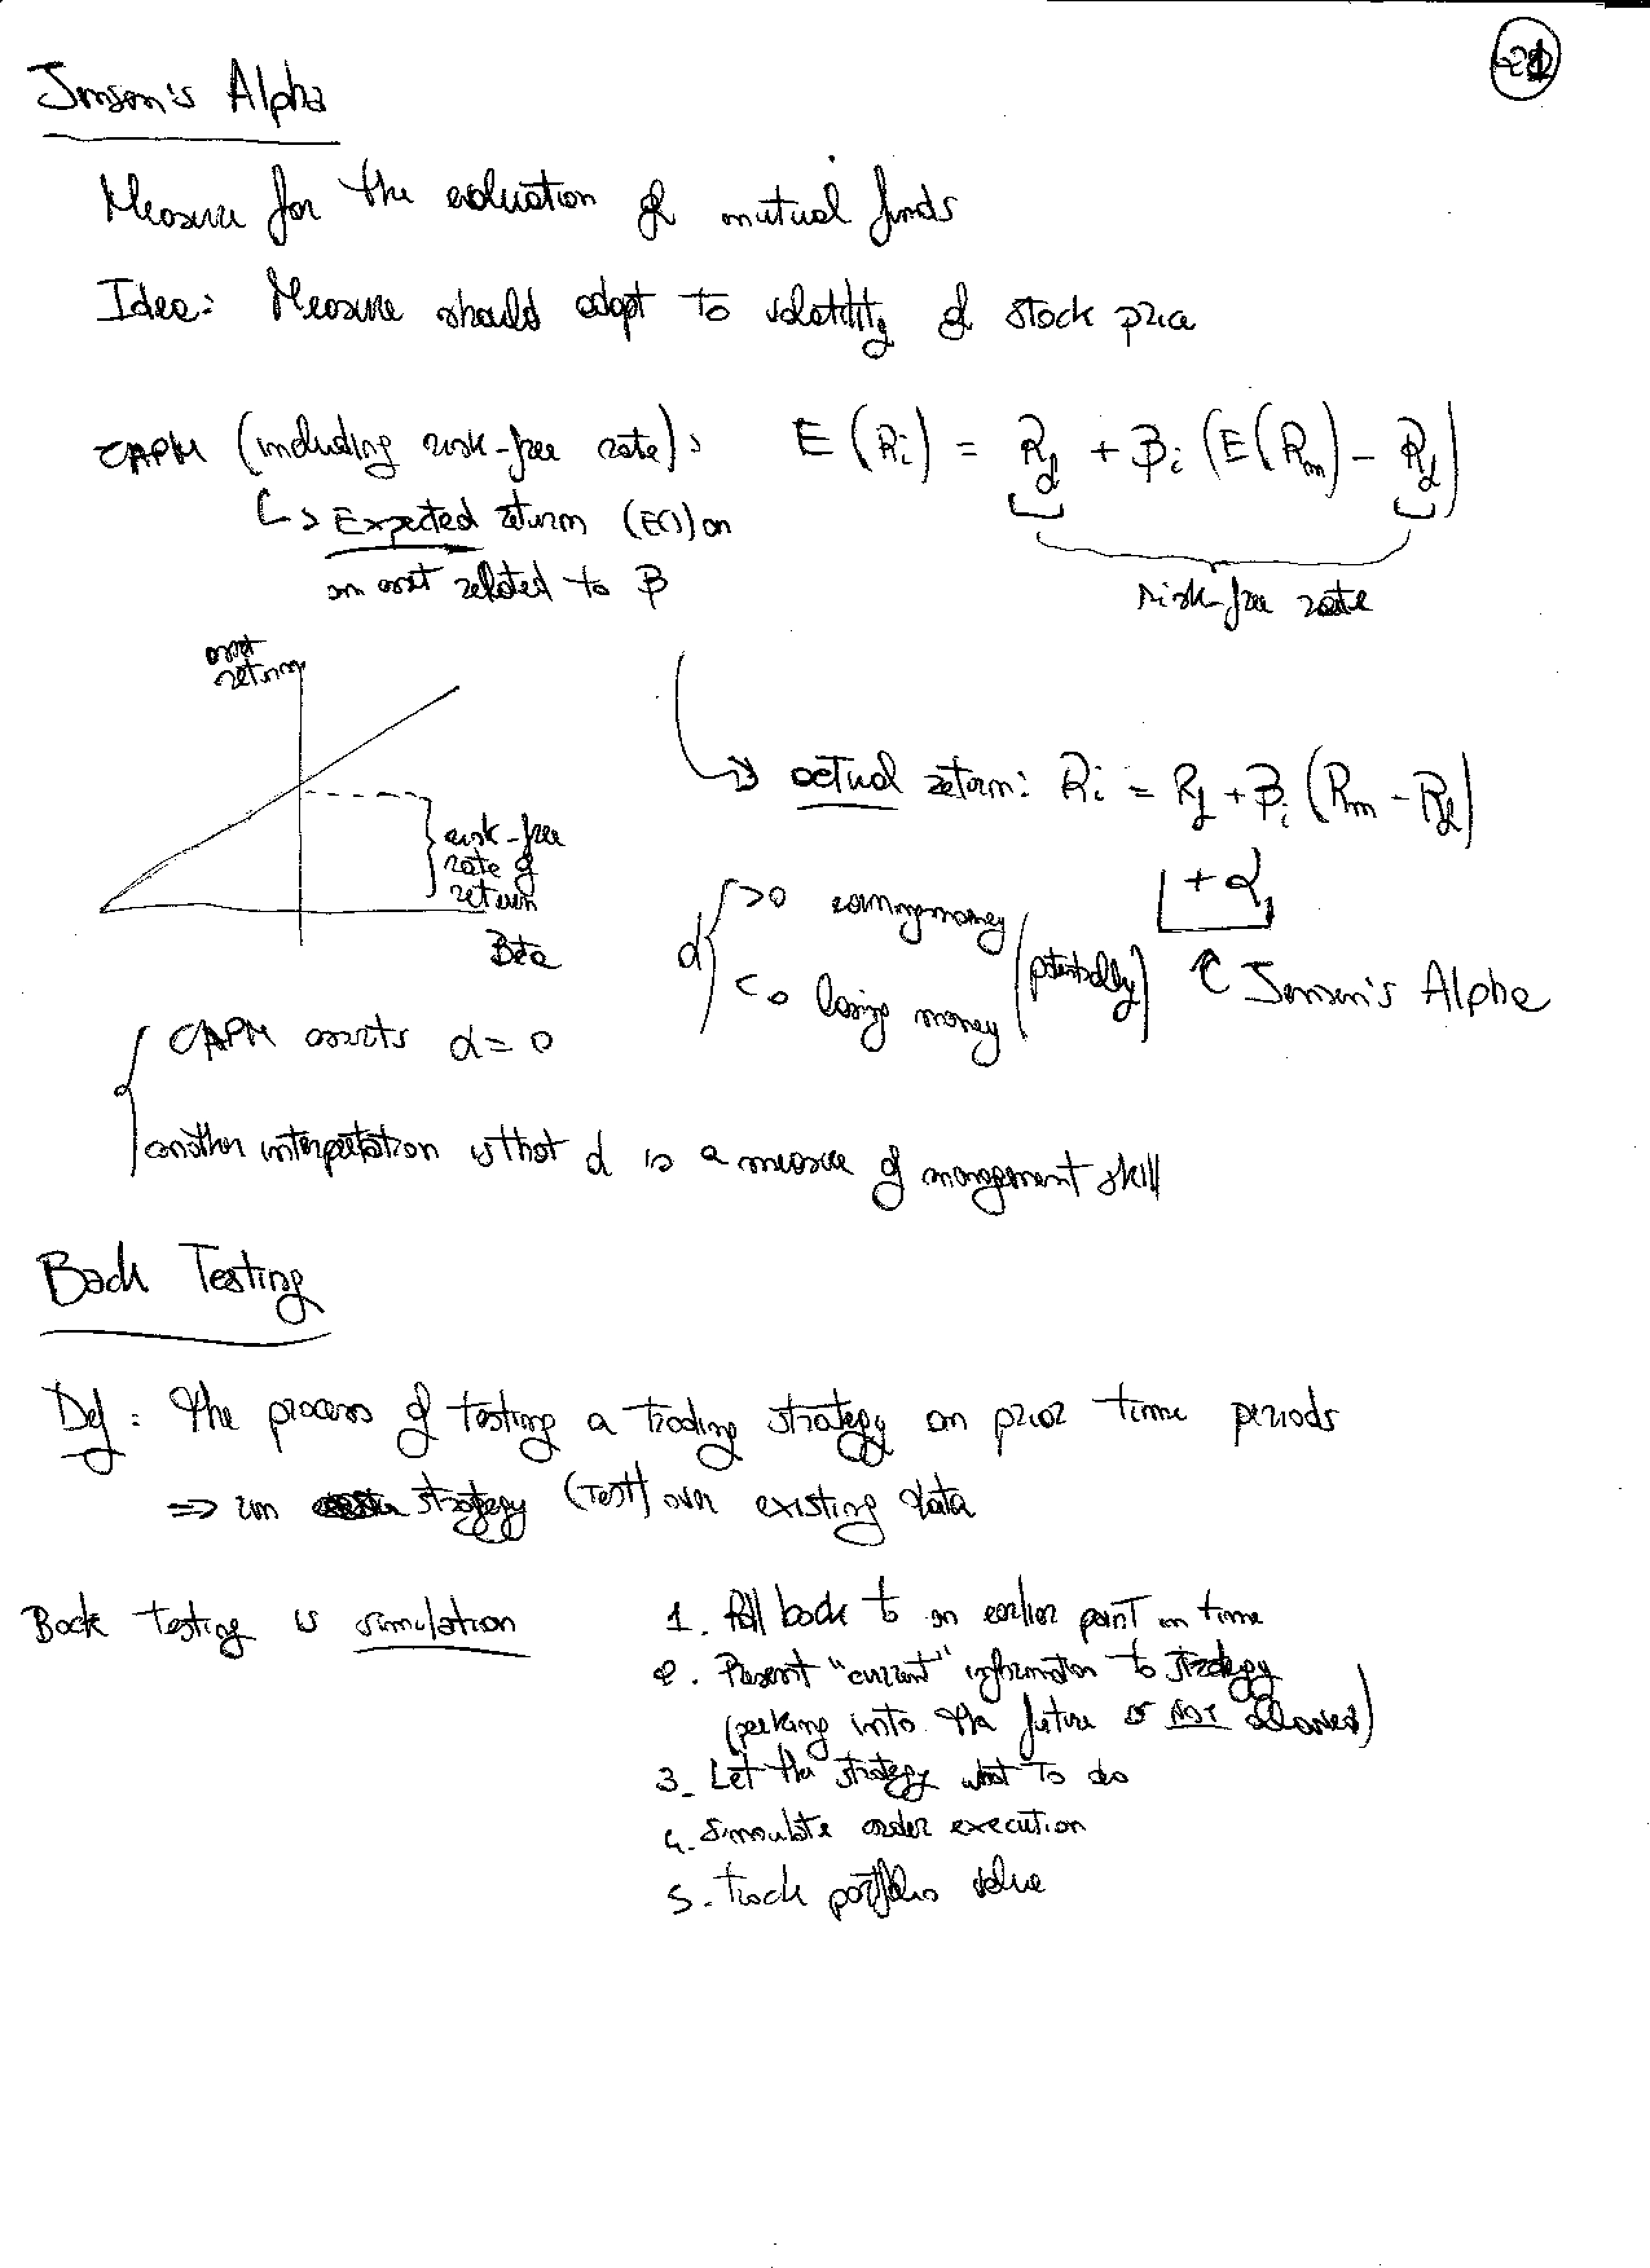 Jensen's Alpha
Measure for the evaluation of mutual funds
Idea: Measure should adapt to volatility of stock price
CAPM (including risk-free rate): E(Ri) = Rf + βi (E(Rm) - Rf)
↳ Expected return (E()) on
an asset related to β
risk-free rate
asset
return
risk-free
rate of
return
Beta
→ actual return: Ri = Rf + βi (Rm - Rf)
+ α
α { >0 earning money
<0 losing money (potentially)
↑ Jensen's Alpha
CAPM asserts α = 0
another interpretation is that α is a measure of management skill
Back Testing
Def: The process of testing a trading strategy on prior time periods
⇒ run strategy (test) over existing data
Back testing is simulation
1. Roll back to an earlier point in time
2. Present "current" information to strategy
(peeking into the future is NOT allowed)
3. Let the strategy what to do
4. Simulate order execution
5. Track portfolio value